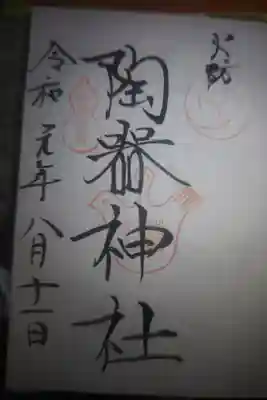 陶器神社
令和元年八月十一日